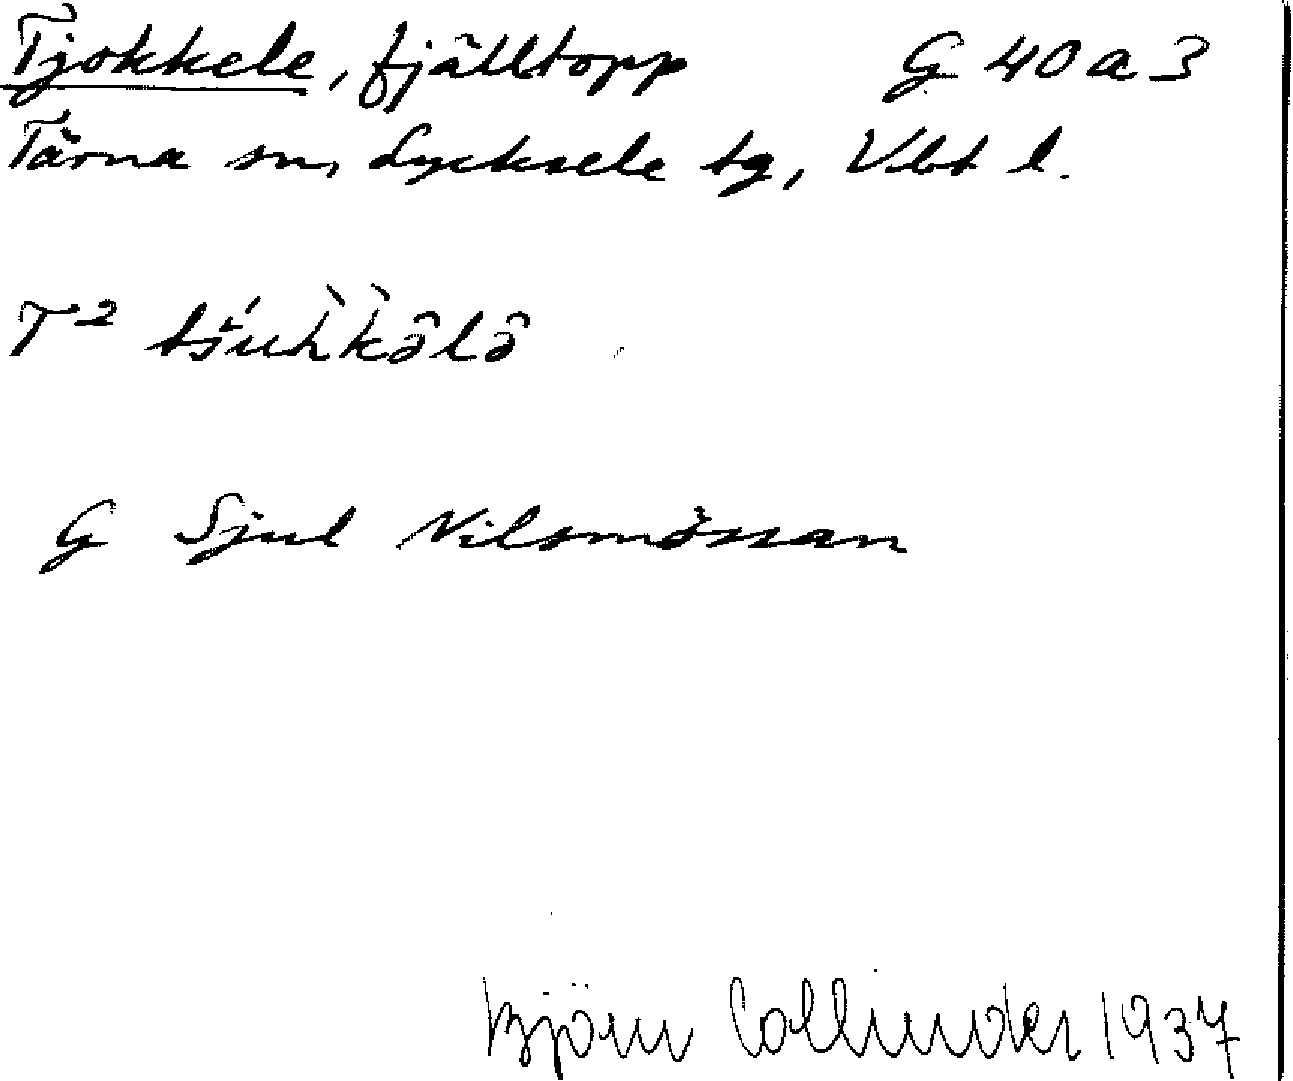 Tjokkele, fjälltopp G 40 a 3
Tärna sn, Lycksele tg, Vbt l.
T² tśuh̀k̀ə̂lə̂
G Sjul Nilsmössan
Björn Collinder 1937